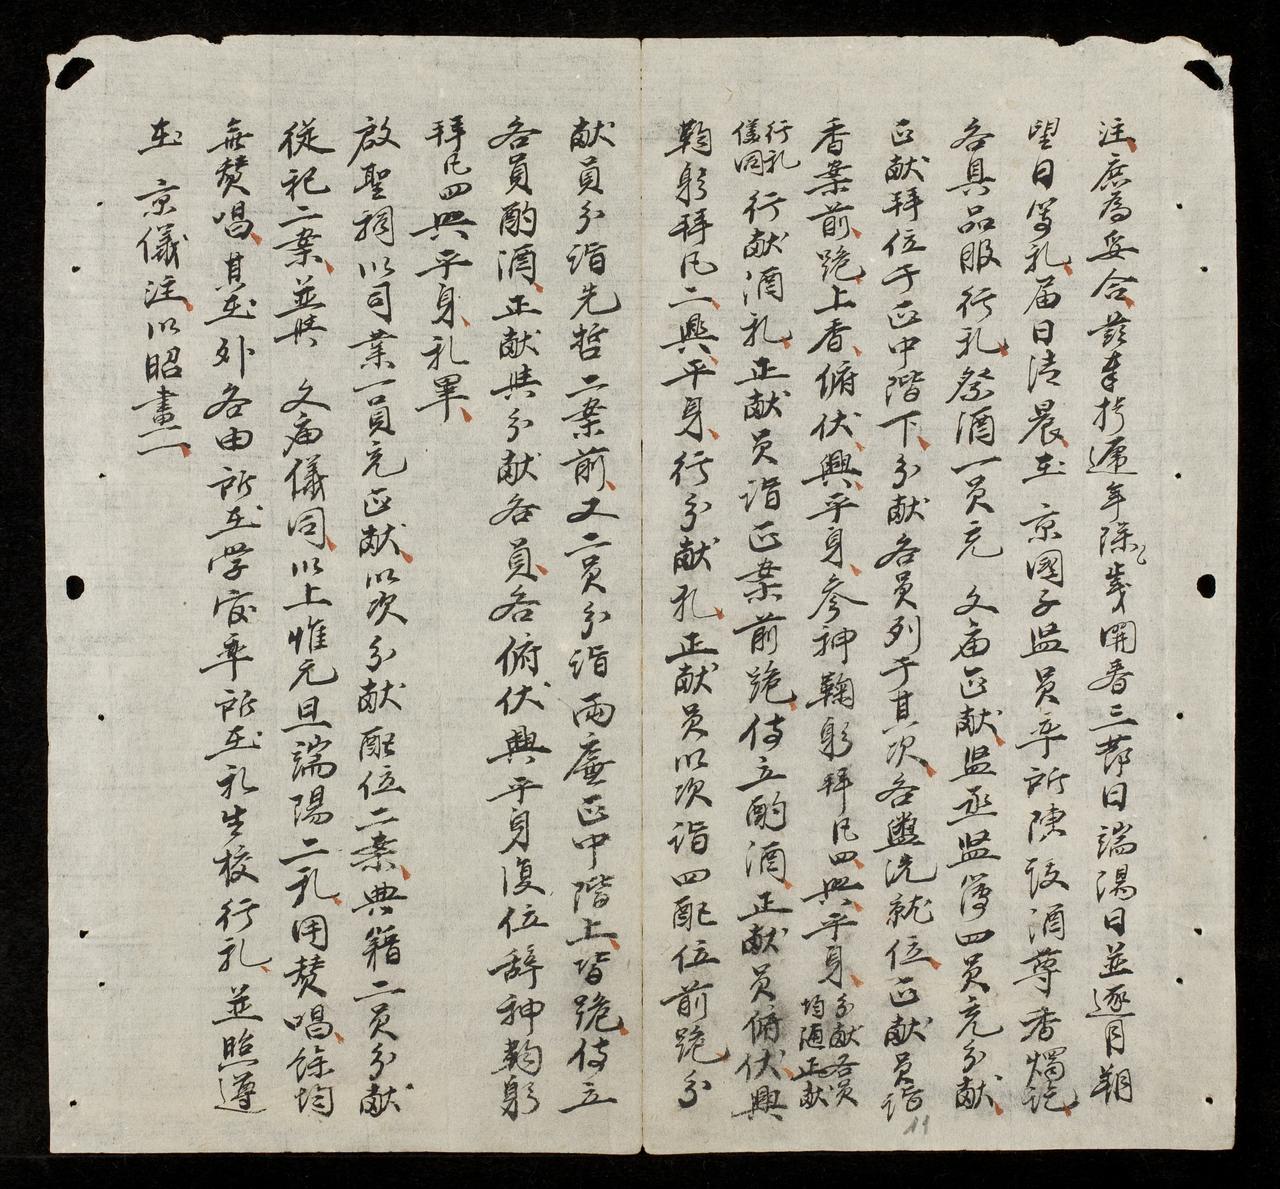 注庶為妥合茲奉擬遞年除歲開春三節日端陽日並逐月朔
望日等礼届日清晨在 京國子監員率所陳設酒尊香燭訖
各具品服行礼祭酒一員充 文庙正献監丞監簿四員充分献
正献拜位于正中階下分献各員列于其次各盥洗就位正献員詣
香案前跪上香俯伏興平身參神鞠躬拜凡四興平身分献各員均随正献
行礼儀同行献酒礼正献員詣正案前跪侍立酌酒正献員俯伏興
鞠躬拜凡二興平身行分献礼正献員以次詣四配位前跪分
献員分詣先哲二案前又二員分詣兩廡正中階上皆跪侍立
各員酌酒正献與分献各員各俯伏興平身復位辞神鞠躬
拜凡四興平身礼畢
啟聖祠以司業一員充正献以次分献配位二案典籍二員分献
從祀二案並與 文庙儀同以上惟元旦端陽二礼用贊唱餘均
無贊唱其在外各由所在学官率所在礼生校行礼並照遵
在 京儀注以昭畫一
11